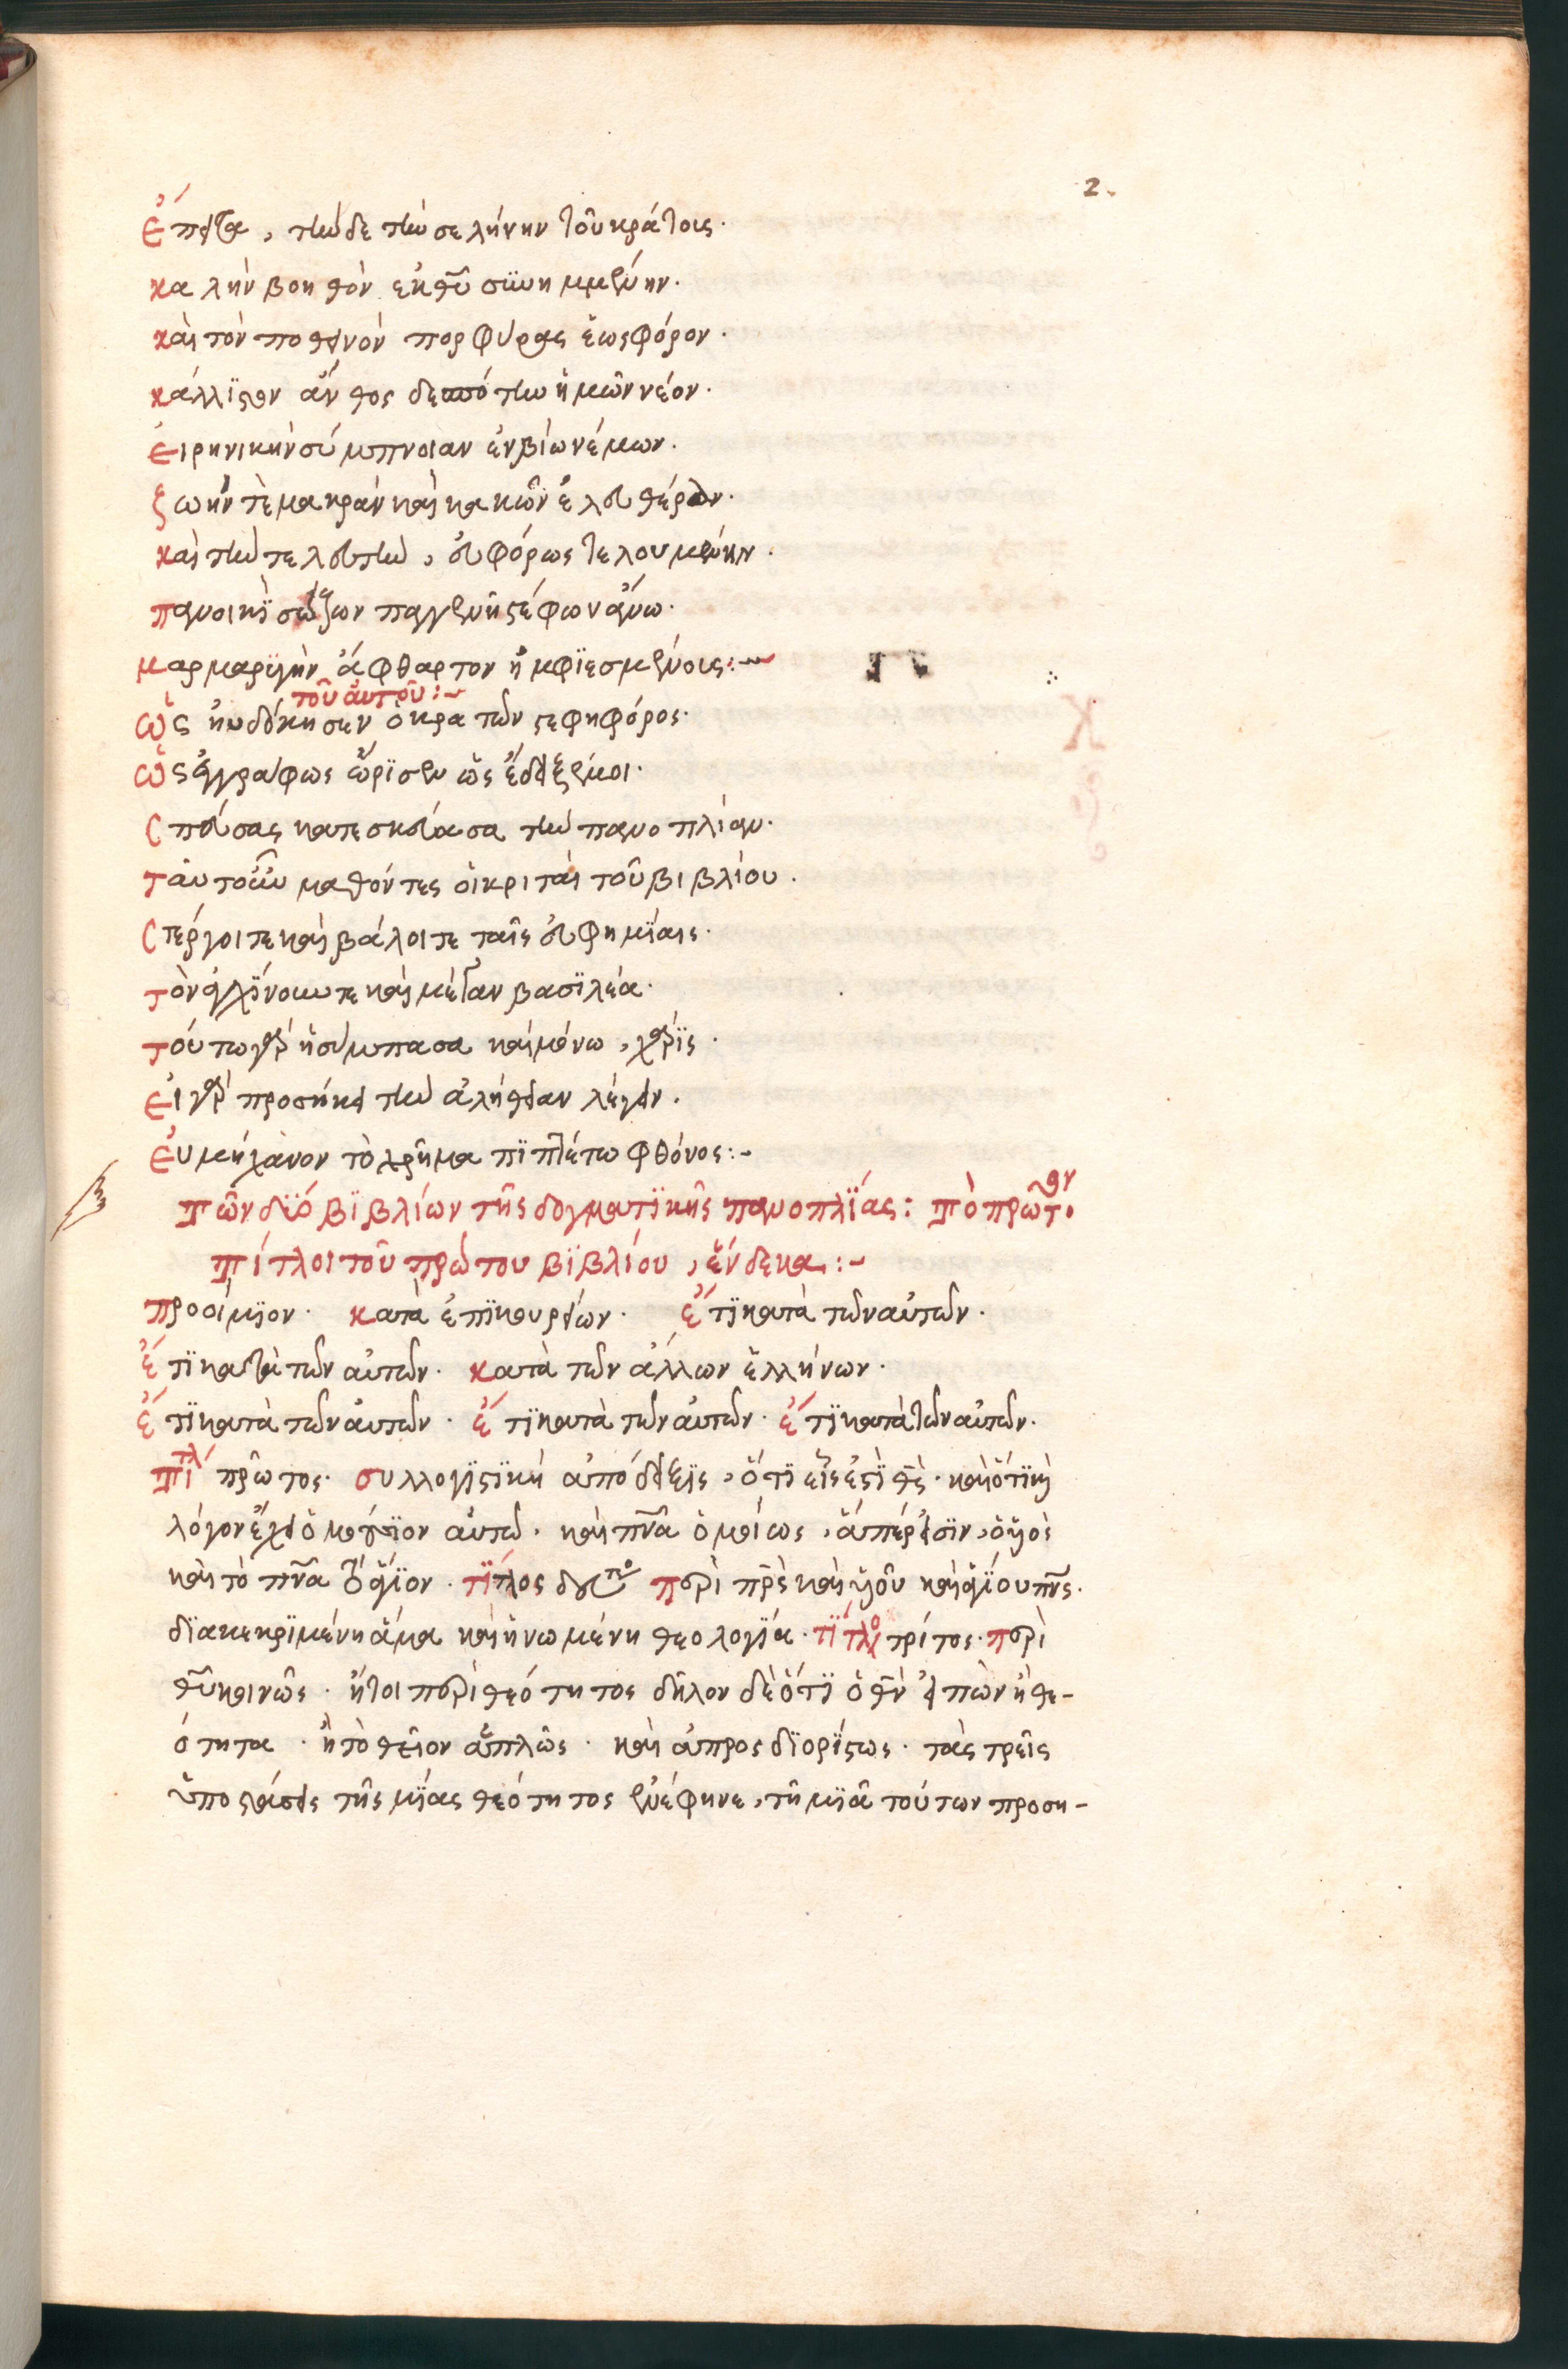 2.
ἔπειτα, τὴν δε τὴν σελήνην τοῦ κράτους.
καλὴν βοηθὸν ἐκ θῦ σϊωημμένην.
καὶ τὸν ποθεινὸν πορφύρας ἑωσφόρον.
κάλλϊστον ἄνθος δεσπότην ἡμῶν νέον.
εἰρηνικὴν σύμπνοιαν ἐν βίω νέμων.
ζωὴν τὲ μακρὰν καὶ κακῶν ἐλευθέραν.
καὶ τὴν τελευτὴν, εὐφόρως τελουμένην.
πανοικὶ σώζων παγγενῆ στέφων ἄνω.
μαρμαρϋγὴν ἄφθαρτον ἠμφϊεσμένους:~
τοῦ αὐτοῦ:~
ὡς ηὐδόκησεν ὁ κρατῶν στεφηφόρος.
ὡς ἀγράφως ὥρϊσεν ὡς ἔδειξέ μοι.
σπεύσας κατεσκεύασα τὴν πανοπλίαν.
ταῦτ' οὖν μαθόντες οἱ κριταὶ τοῦ βιβλίου.
στέργοιτε καὶ βάλοιτε ταῖς εὐφημΐαις.
τὸν ἀγχΐνουν τε καὶ μέγαν βασϊλέα.
τούτω γὰρ ἡ σύμπασα καὶ μόνω, χάρϊς.
εἰ γὰρ προσήκει τὴν ἀλήθειαν λέγειν.
εὐμήχανον τὸ χρῆμα πϊπλέτω φθόνος:~
Τῶν δύο βϊβλίων τῆς δογματϊκῆς πανοπλΐας: Τὸ πρῶτον.
Τίτλοι τοῦ πρώτου βϊβλίου, ἕνδεκα:~
προοίμϊον. κατὰ ἐπϊκουρείων. ἔτϊ κατὰ τῶν αὐτῶν.
ἔτϊ κατὰ τῶν αὐτῶν. κατὰ τῶν ἄλλων ἑλλήνων.
ἔτϊ κατὰ τῶν αὐτῶν. ἔτϊ κατὰ τῶν αὐτῶν. ἔτϊ κατὰ τῶν αὐτῶν.
Τίτλ πρῶτος. συλλογϊστϊκὴ ἀπόδειξϊς, ὅτϊ εἷς ἐστὶ θς. καὶ ὅτϊ καὶ
λόγον ἔχει ὁμούσϊον αὐτῶ. καὶ πνα ὁμοίως, ἅπέρ εἰσϊν, ὁ υἱὸς
καὶ τὸ πνα τὸ ἅγϊον. τΐτλος δεύτερο περὶ πρς καὶ υἱοῦ καὶ ἁγΐου πνς.
δϊακεκρϊμένη ἅμα καὶ ἡνωμένη θεολογΐα. τΐτλο τρίτος. περὶ
θῦ κοινῶς. ἤτοι περὶ θεότητος δῆλον δὲ ὅτϊ ὁ θν εἰπὼν ἢ θε-
ότητα. ἢ τὸ θεῖον ἁπλῶς. καὶ ἀπροσδϊορίστως. τὰς τρεῖς
ὑποστάσεις τῆς μϊᾶς θεότητος ἐνέφηνε, τῆ μϊᾶ τούτων προση-